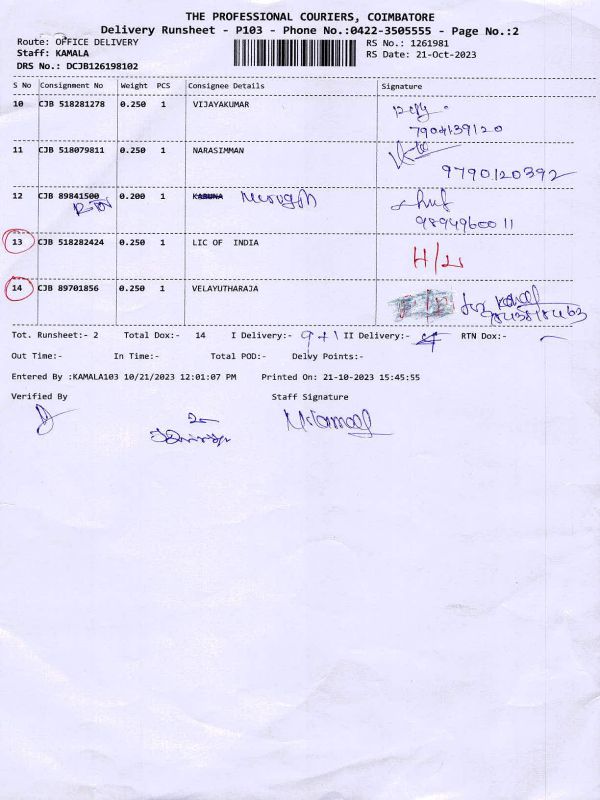 THE PROFESSIONAL COURIERS, COIMBATORE
Delivery Runsheet - P103 - Phone No.:0422-3505555 - Page No.:2
Route: OFFICE DELIVERY
RS No.: 1261981
Staff: KAMALA
RS Date: 21-Oct-2023
DRS No.: DCJB126198102
S No Consignment No Weight PCS Consignee Details Signature
10 CJB 518281278 0.250 1 VIJAYAKUMAR
7904139120
11 CJB 518079811 0.250 1 NARASIMMAN
9790120392
12 CJB 89841500 0.200 1 KARUNA Murugesh
9894960011
13 CJB 518282424 0.250 1 LIC OF INDIA
H/L
14 CJB 89701856 0.250 1 VELAYUTHARAJA
Tot. Runsheet:- 2 Total Dox:- 14 I Delivery:- 9+1 II Delivery:- 4 RTN Dox:- -
Out Time:- In Time:- Total POD:- Delvy Points:-
Entered By :KAMALA103 10/21/2023 12:01:07 PM Printed On: 21-10-2023 15:45:55
Verified By Staff Signature
2